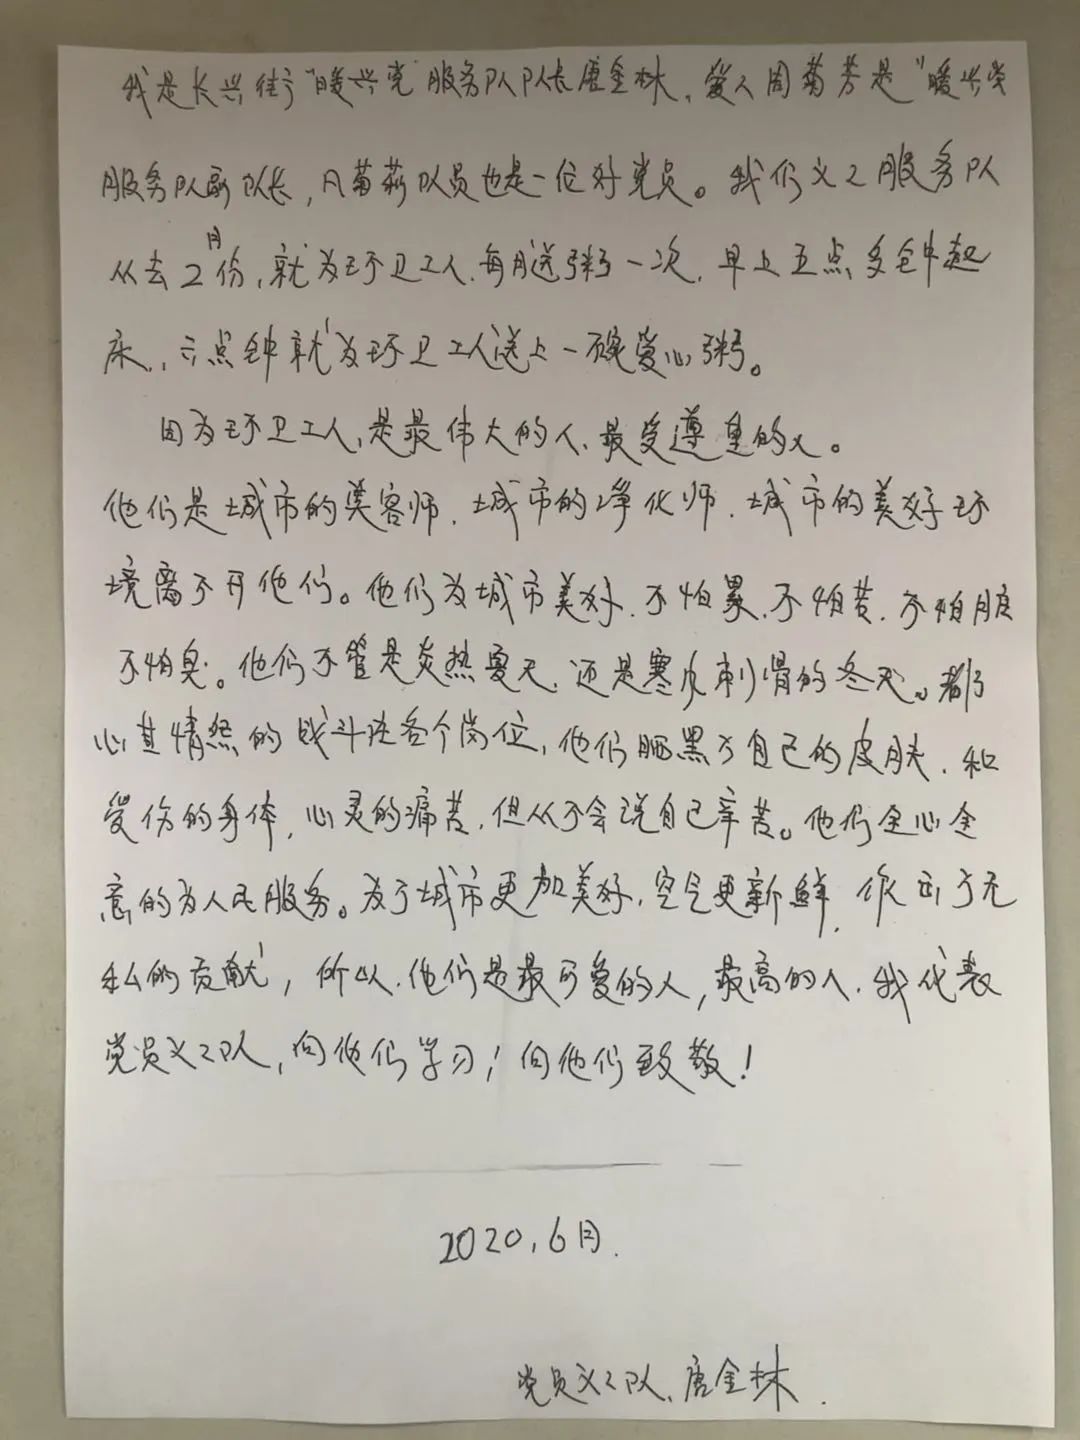 我是长兴街"暖兴党服务队队长唐金林，爱人周菊芳是"暖兴党
服务队副队长，凡菊芬队员也是一位好党员。我们义工服务队
从去2月份，就为环卫工人.每月送粥一次，早上五点多钟起
床，六点钟就为环卫工人送上一碗爱心粥。
因为环卫工人，是最伟大的人、最受遵重的人。
他们是城市的美容师.城市的净化师.城市的美好环
境离不开他们。他们为城市美好.不怕累.不怕苦.不怕脏
不怕臭。他们不管是炎热夏天.还是寒皮刺骨的冬天。都
心其情愿的战斗在各个岗位，他们晒黑了自己的皮肤.和
受伤的身体，心灵的痛苦，但从不会说自己辛苦。他们全心全
意的为人民服务。为了城市更加美好.空气更新鲜.作出了无
私的贡献，所以.他们是最可爱的人，最高的人.我代表
党员义工队，向他们学习！向他们致敬！
2020.6月.
党员义工队.唐金林.